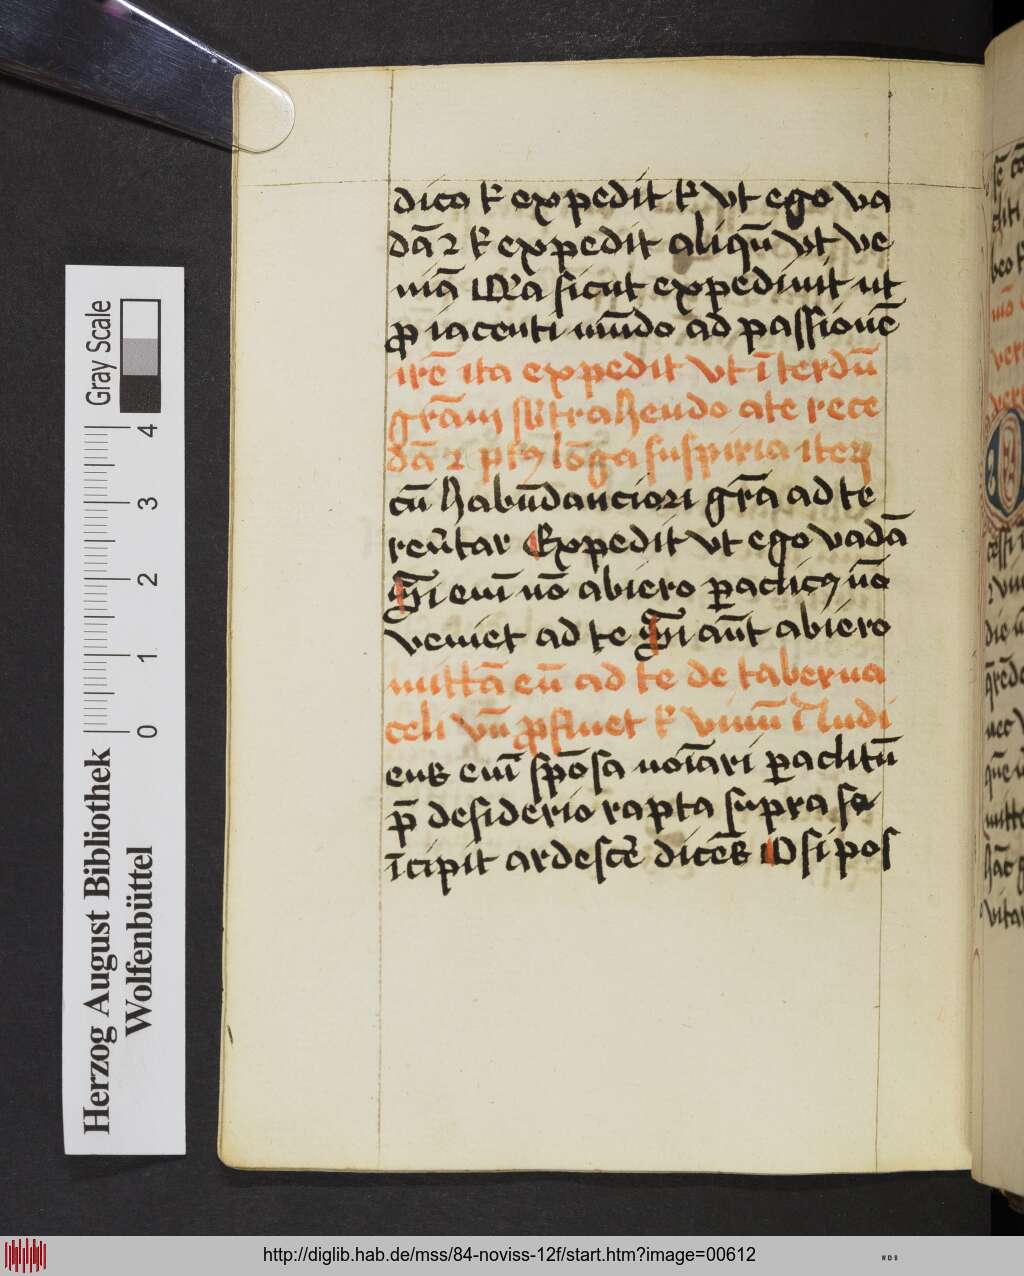 dico k expedit k vt ego va
dā ⁊ k expedit aliqn̄ vt ve
niā Q'a sicut expediuit ut
ꝓ iacenti mūdo ad passionē
irē ita expedit vt īterdū
grām sb̄trahendo a te rece
dā ⁊ lōga suspiria iterꝫ
cū habūdanciori grā ad te
reūtar Expedit vt ego vadā
Si eni nō abiero ꝑaclitꝯ nō
veniet ad te Si aūt abiero
mittā eū ad te de taberna
celi k
ens eni spōsa noīari ꝑaclitū
p̄ desiderio rapta supra se
īcipit ardescē dicēs O si pos
Herzog August Bibliothek
Wolfenbüttel
Gray Scale
0 1 2 3 4
http://diglib.hab.de/mss/84-noviss-12f/start.htm?image=00612